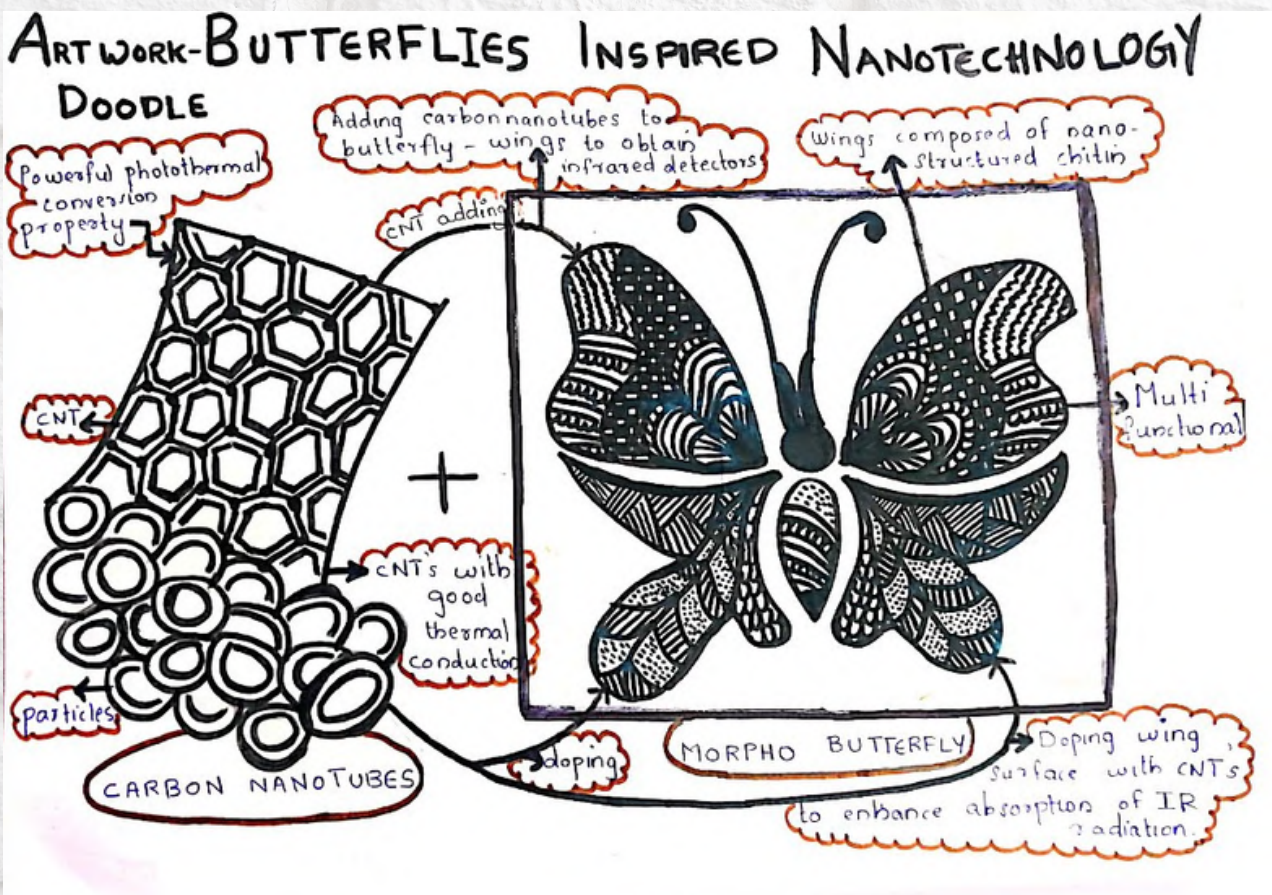 ARTWORK-BUTTERFLIES INSPIRED NANOTECHNOLOGY
DOODLE
Powerful photothermal
conversion
property
Adding carbon nanotubes to
butterfly - wings to obtain
infrared detectors
Wings composed of nano-
structured chitin
CNT adding
CNT
Multi
functional
CNT's with
good
thermal
conduction
particles
CARBON NANOTUBES
doping
MORPHO BUTTERFLY
Doping wing
surface with CNTs
to enhance absorption of IR
radiation.